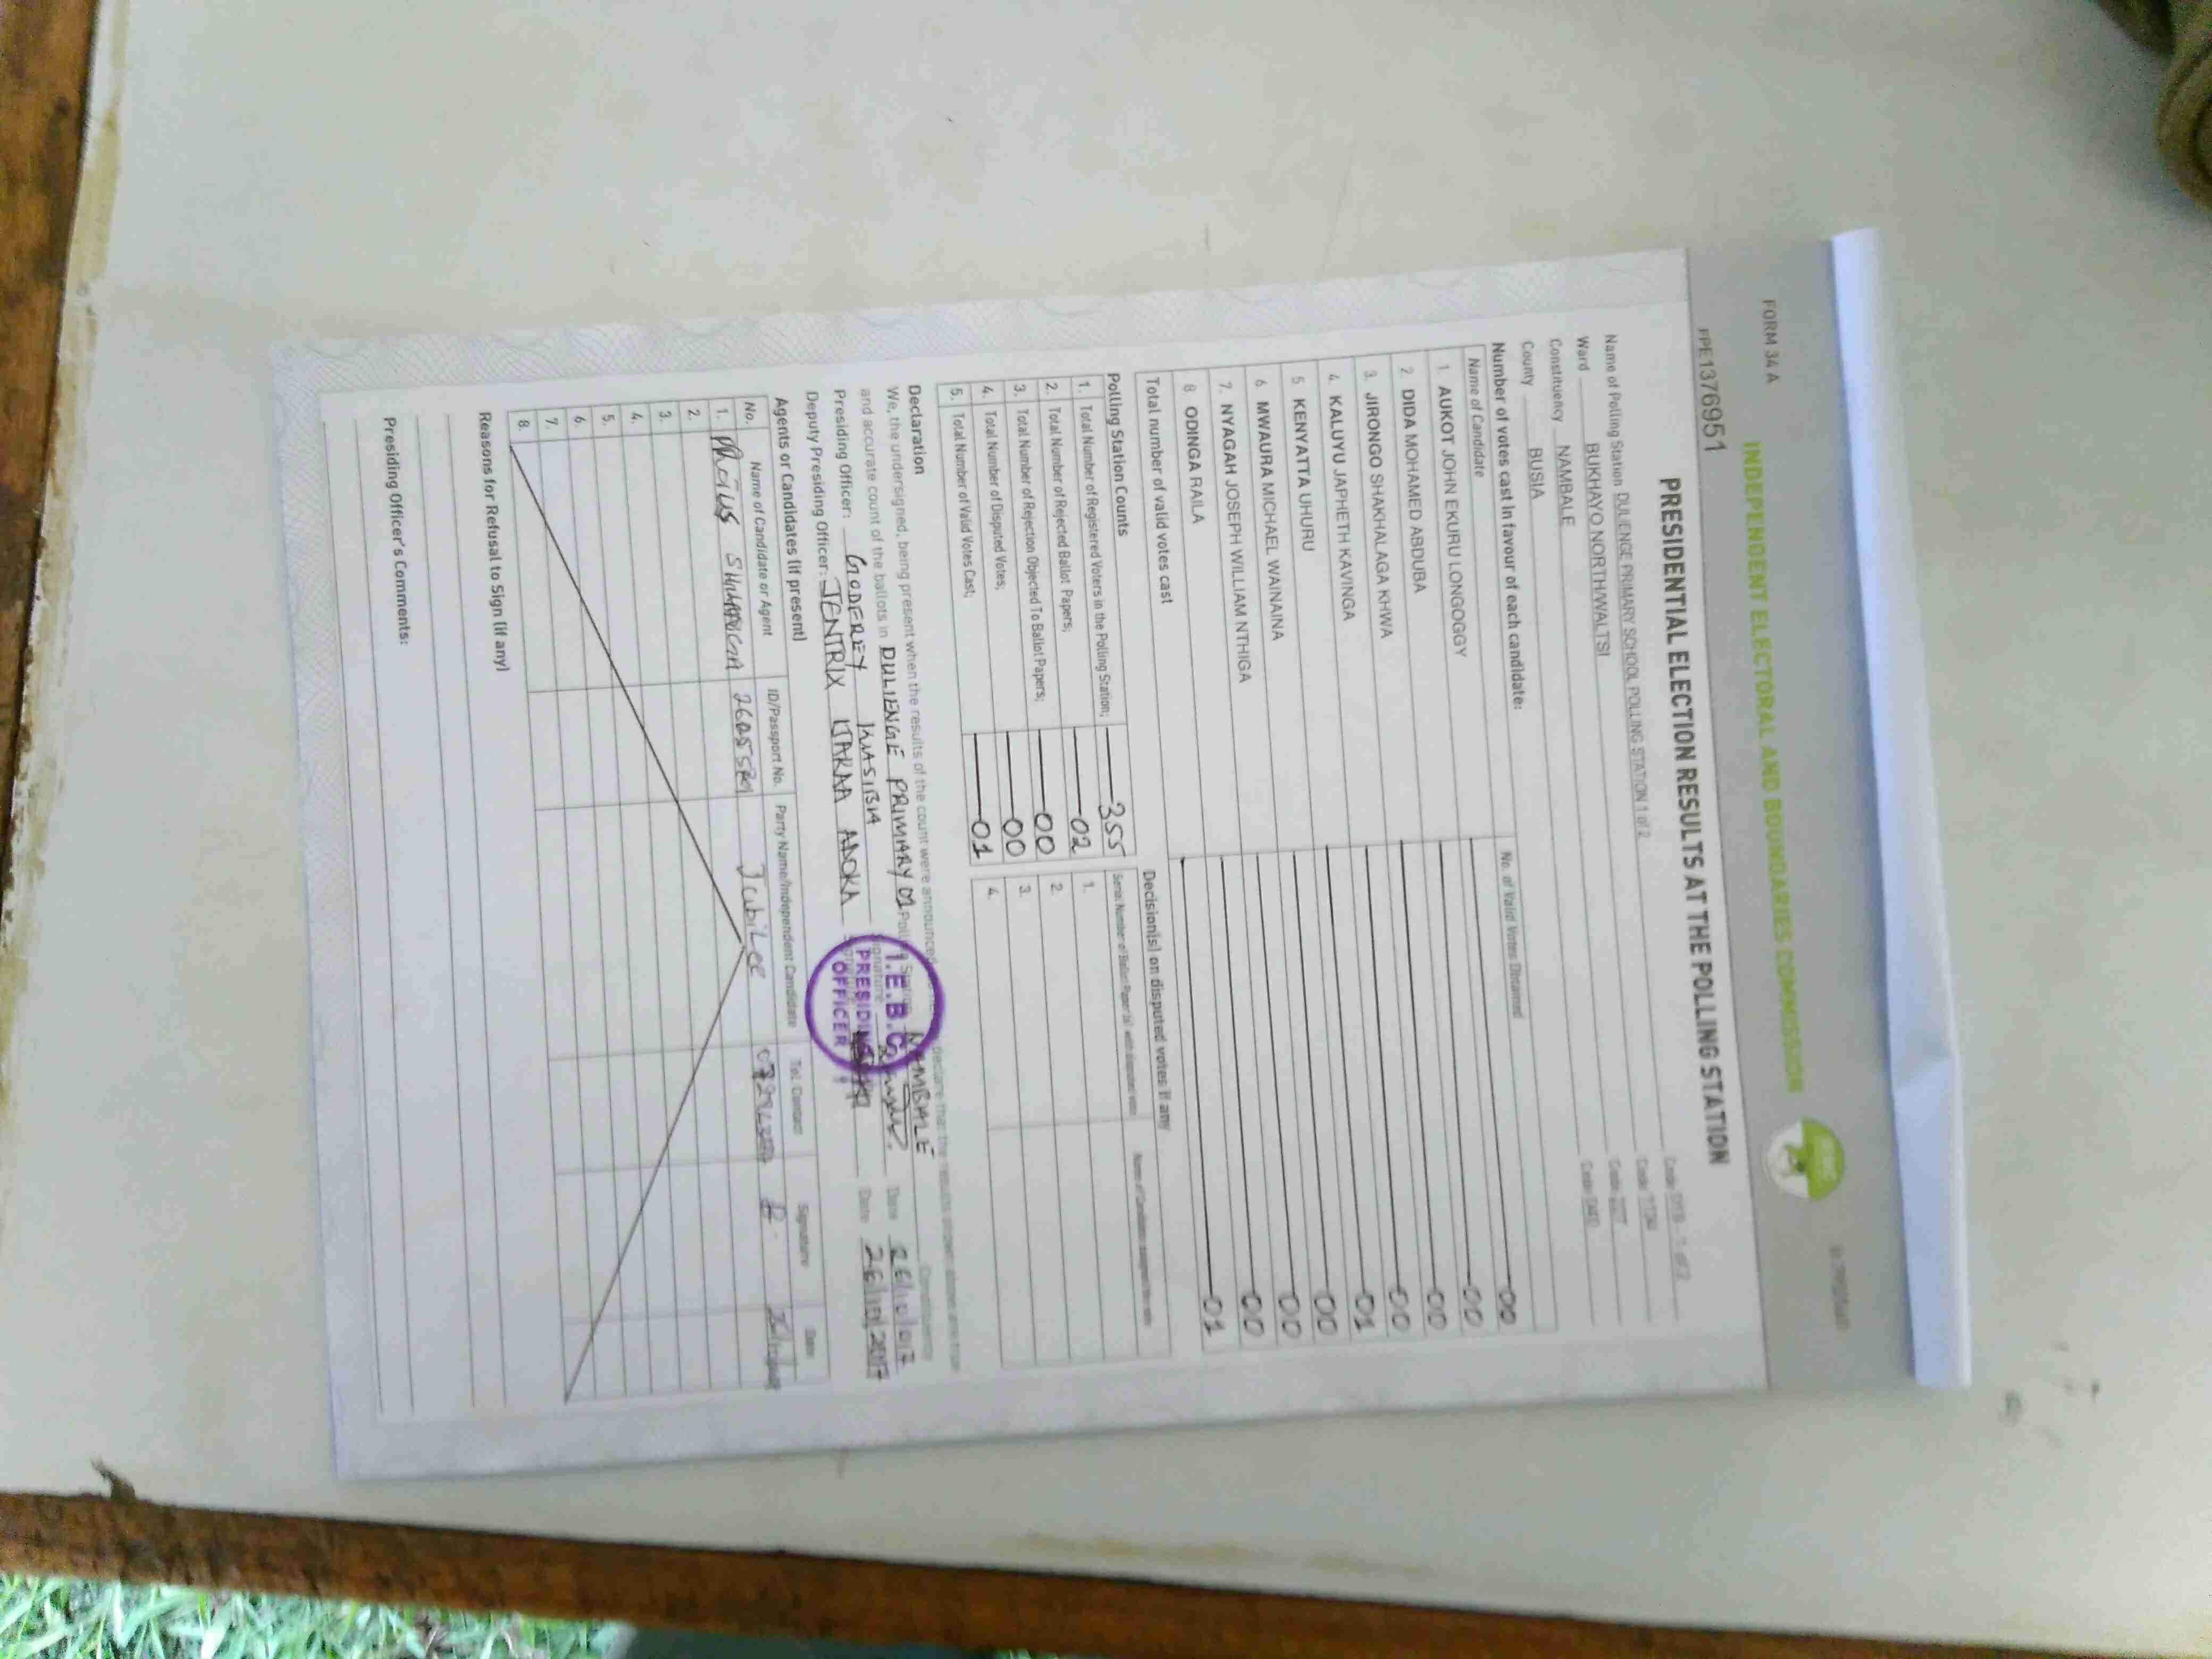 FORM 34 A
INDEPENDENT ELECTORAL AND BOUNDARIES COMMISSION
PE1376951
PRESIDENTIAL ELECTION RESULTS AT THE POLLING STATION
Name of Polling Station DULIENGE PRIMARY SCHOOL POLLING STATION 1 of 2 Code 1 of 2
Ward BUKHAYO NORTH/WALTSI Code
Constituency NAMBALE Code
County BUSIA Code
Number of votes cast in favour of each candidate:
Name of Candidate No. of Valid Votes Obtained
1 AUKOT JOHN EKURU LONGOGGY 00
2 DIDA MOHAMED ABDUBA 00
3. JIRONGO SHAKHALAGA KHWA 00
4. KALUYU JAPHETH KAVINGA 00
5 KENYATTA UHURU 01
6 MWAURA MICHAEL WAINAINA 00
7. NYAGAH JOSEPH WILLIAM NTHIGA 00
8 ODINGA RAILA 00
Total number of valid votes cast 01
Polling Station Counts
1. Total Number of Registered Voters in the Polling Station; 355
2. Total Number of Rejected Ballot Papers; 02
3. Total Number of Rejection Objected To Ballot Papers; 00
4. Total Number of Disputed Votes; 00
5. Total Number of Valid Votes Cast; 01
Decision(s) on disputed votes if any
Serial Number of Ballot Paper (s) with disputed vote
1.
2.
3.
4.
Declaration
We, the undersigned, being present when the results of the count were announced, declare that the results shown above are true
and accurate count of the ballots in DULIENGE PRIMARY 01 Polling Station NAMBALE Constituency
Presiding Officer: GODFREY Signature Date 26/10/017
Deputy Presiding Officer: JENTRIX ADOKA Date 26/10/2017
I.E.B.C
PRESIDING
OFFICER
Agents or Candidates (if present)
No. Name of Candidate or Agent ID/Passport No. Party Name/Independent Candidate Tel. Contact Signature Date
1. Jubilee
2.
3.
4.
5.
6.
7.
8.
Reasons for Refusal to Sign (if any)
Presiding Officer's Comments: